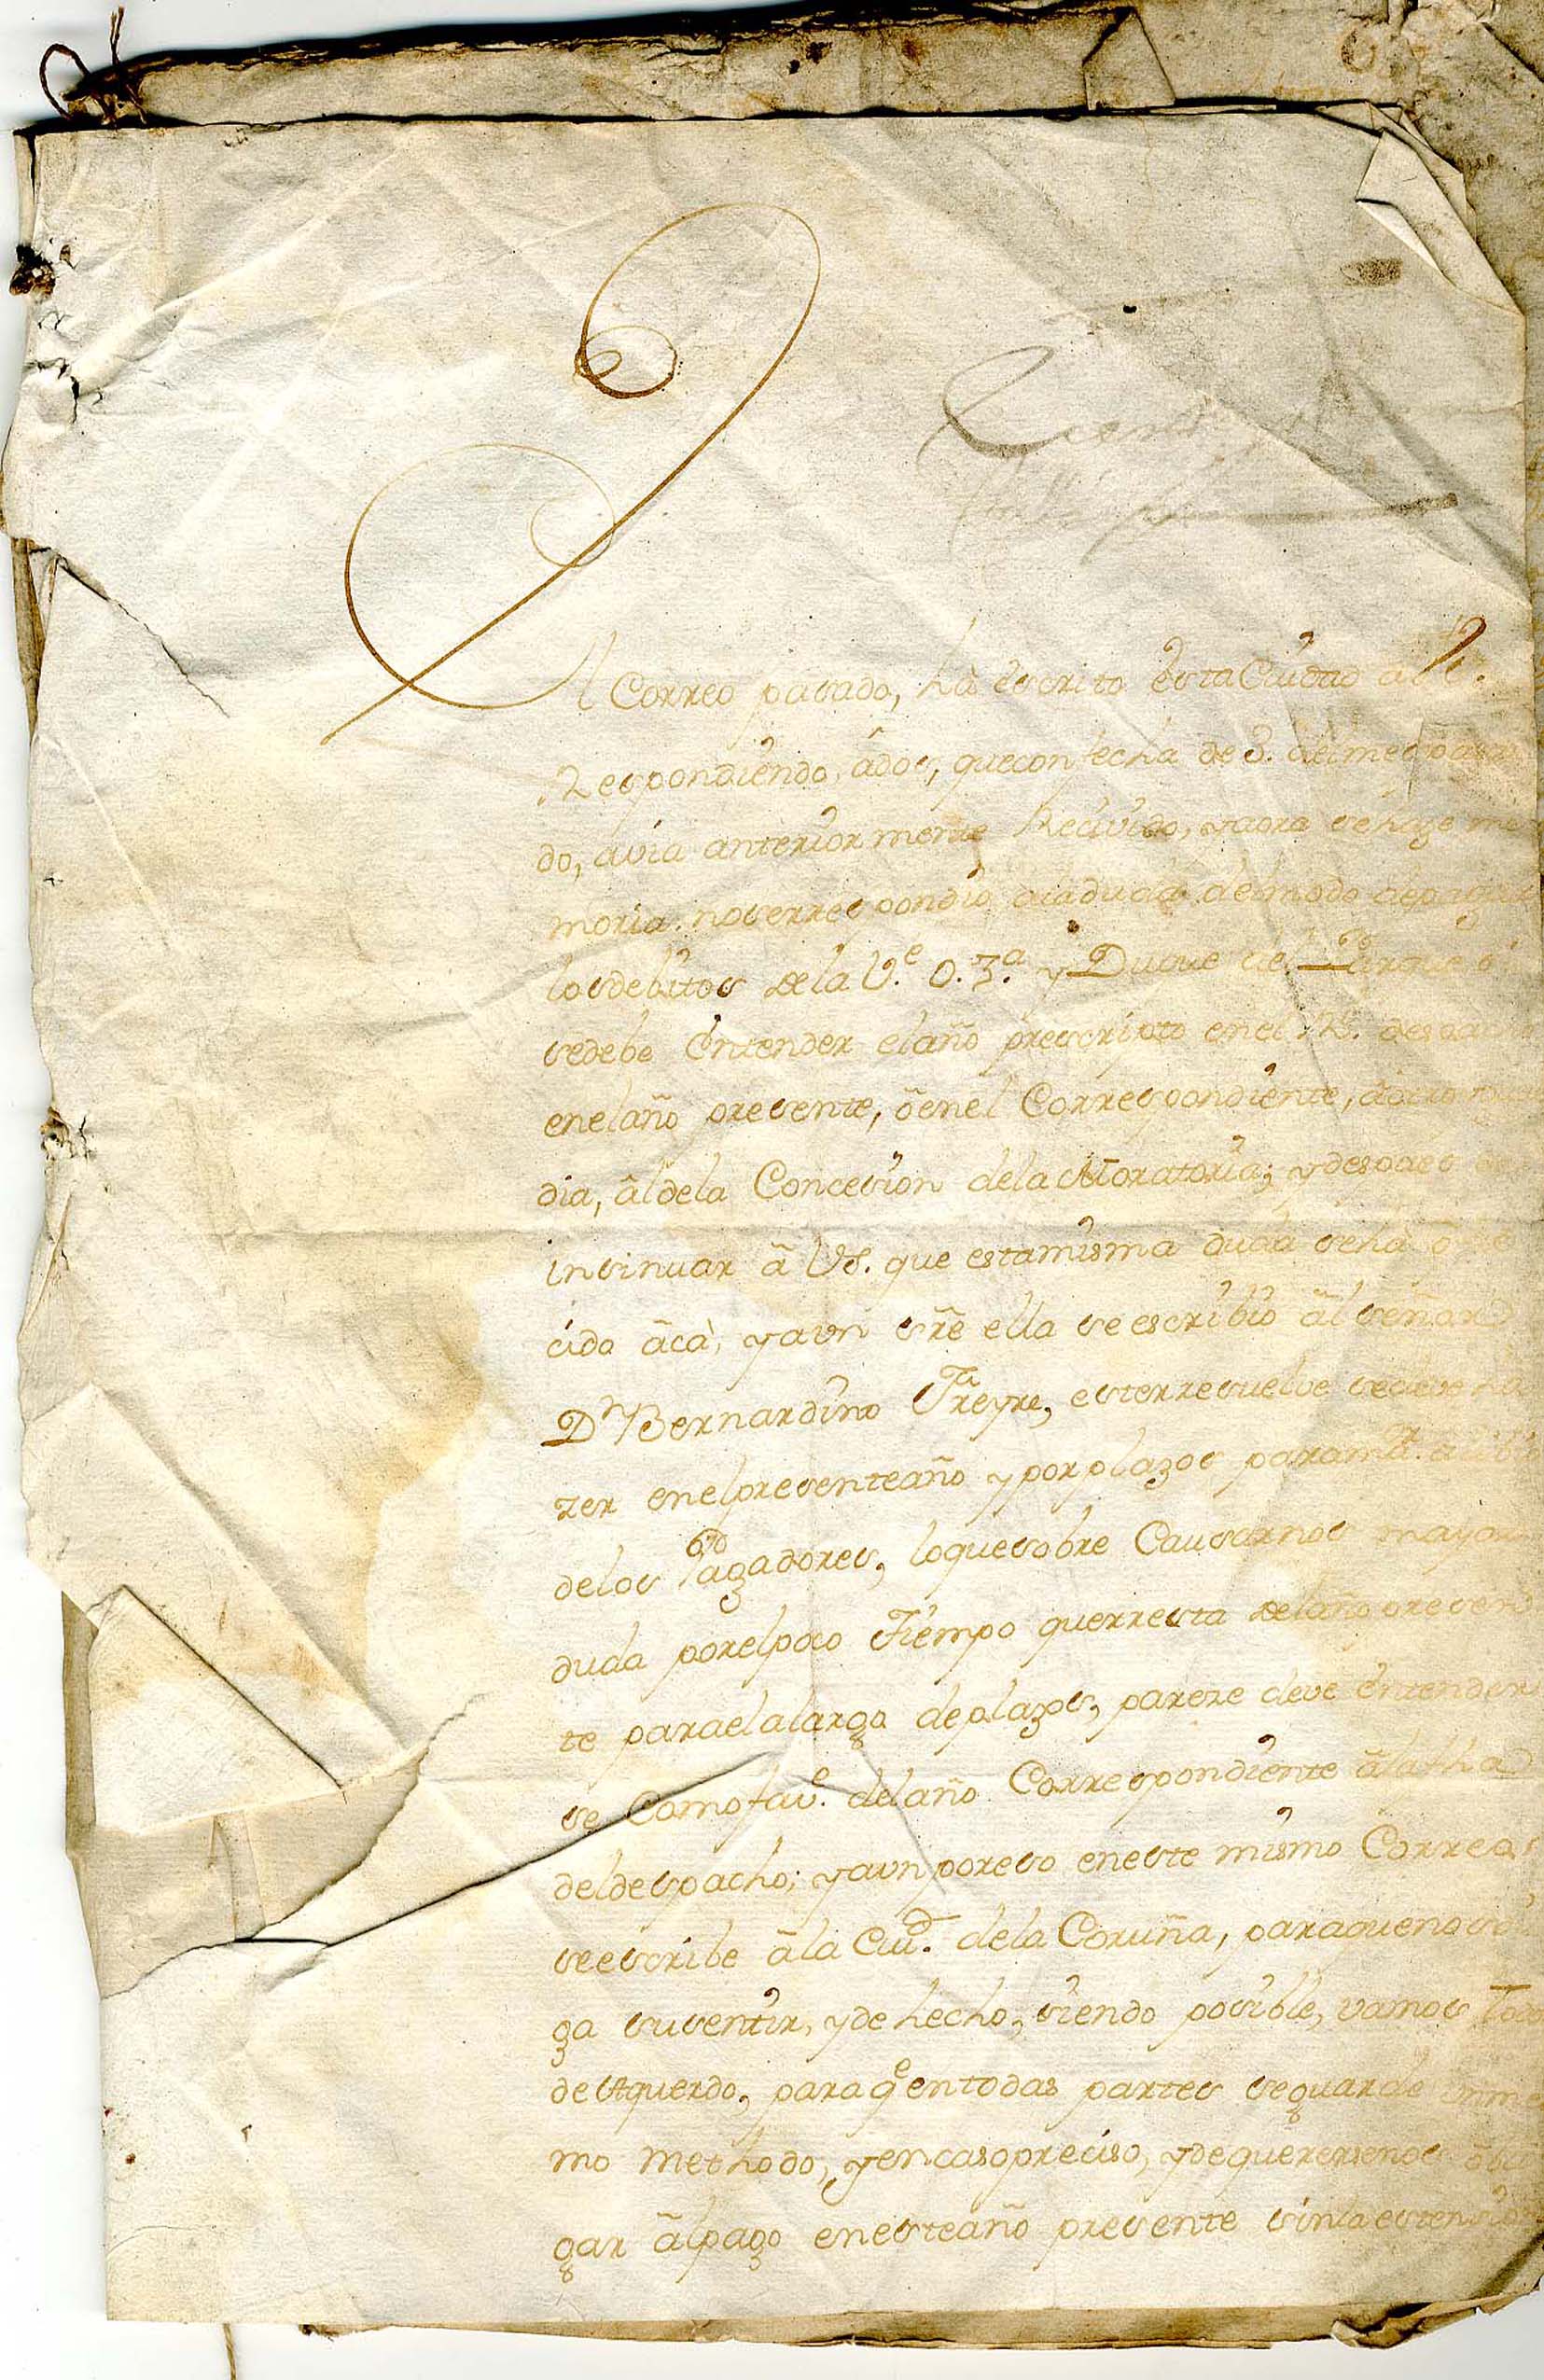 El Correo pasado, hà escrito esta Ciudad a VS.
Respondiendo, âdos, quecon fecha de 3. del mes pasa
do, avia anteriormente Recivido, yaora sehaze me
moria. noserrespondio aladuda delmodo depagar
losdebitos dela V.e O. 3.a y Duque del Parque ô
sedebe Entender elaño prescripto enel R. despa
enelaño presente, õenel Correspondiente, aotro
dia, âldela Concesion dela Moratoria; ydespues de
insinuar ã VS. que estamisma duda sehà ofre
cido ãcà, yaun sr̃e ella seescribio ãlseñor
Dn Bernardino Freyre, esterresuelve sedeve ha
zer enelpresenteaño yporplazos paramr. alibio
delos Pagadores, loquesobre Causarnos mayor
duda porelpoco Tiempo querresta delaño presen
te paraelalargo deplazos, pareze deve entender
se Como fav.e delaño Correspondiente ãlafha
deldespacho; yaunporeso eneste mismo Correo
seescribe ãla Ciud. dela Coruña, paraquenosdi
ga susentir, yde hecho, siendo posible, vamos Todos
deAquerdo, paraqe entodas partes seguarde
mo methodo, yencasopreciso, ydequerersenos obli
gar ãlpago enesteaño presente sinlaestension